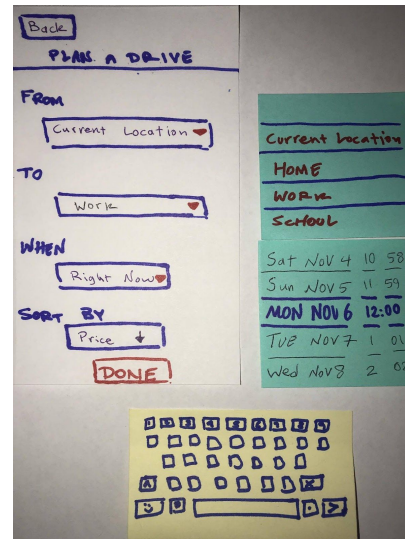 Back
PLAN A DRIVE
FROM
Current Location
TO
Work
WHEN
Right Now
SORT BY
Price ↓
DONE
Current Location
HOME
WORK
SCHOOL
Sat Nov 4 10 58
Sun Nov 5 11 59
MON NOV 6 12:00
TUE NOV 7 1 01
Wed Nov 8 2 02